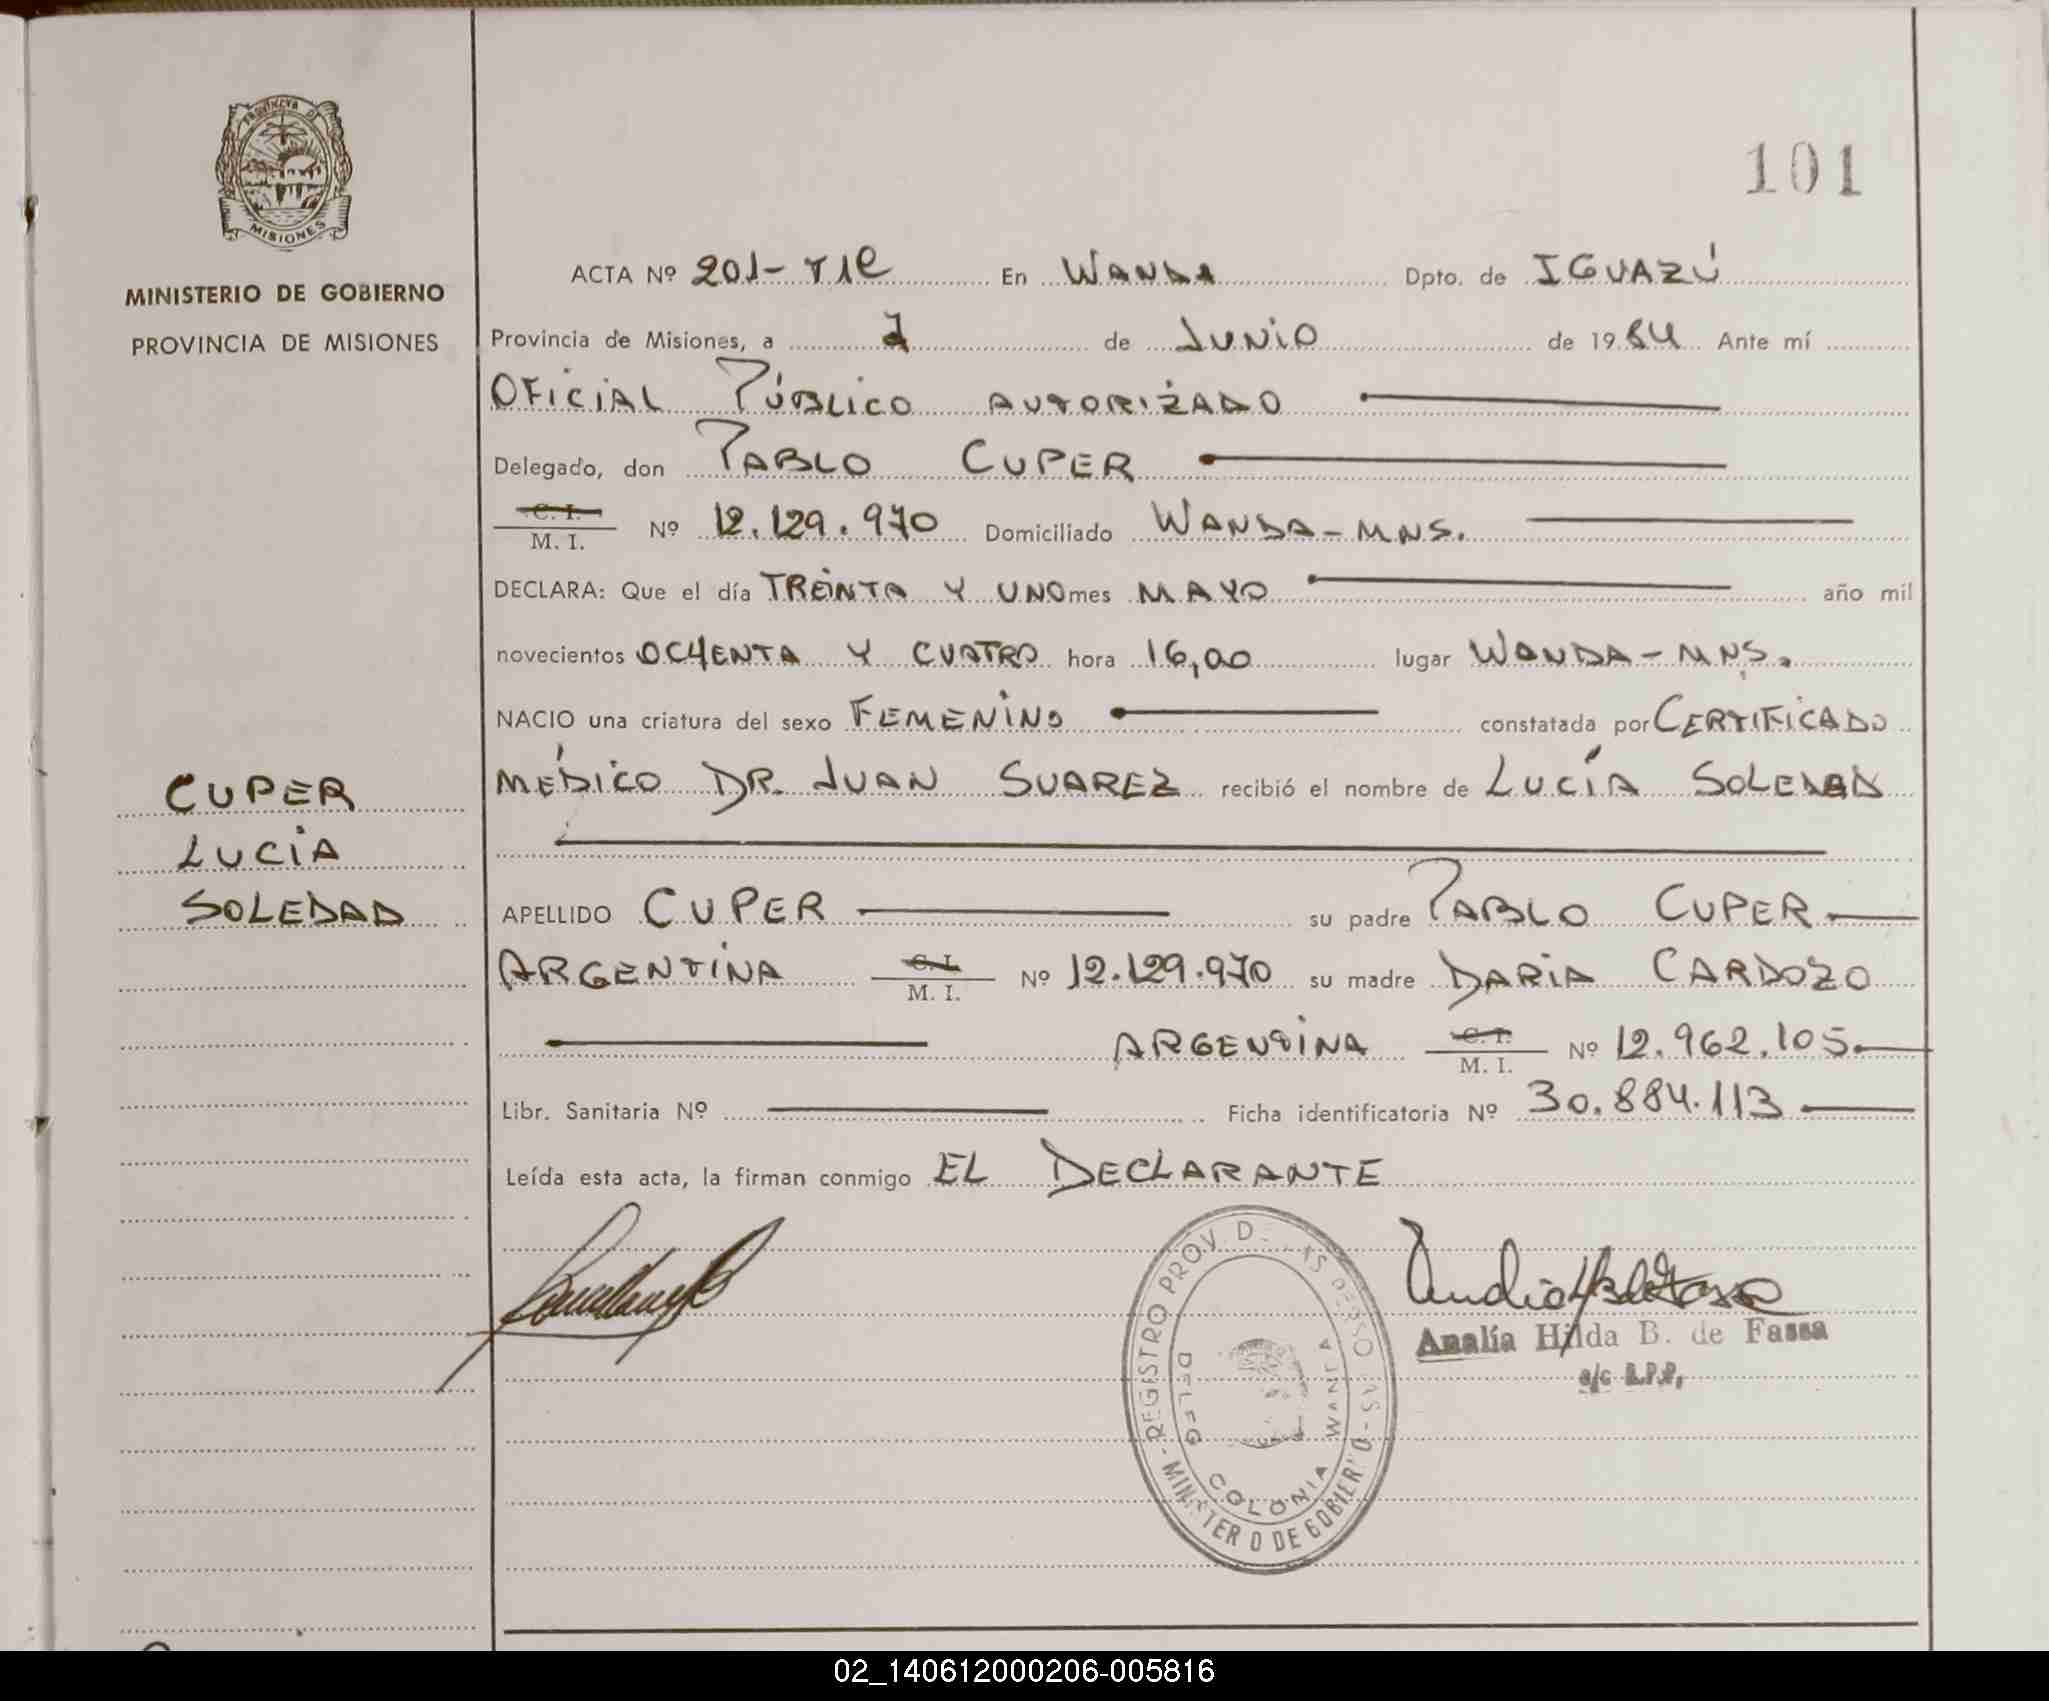 101
PROVINCIA DE
MISIONES
MINISTERIO DE GOBIERNO
PROVINCIA DE MISIONES
ACTA Nº 201-T1C En WANDA Dpto. de IGUAZÚ
Provincia de Misiones, a 7 de JUNIO de 1984 Ante mí
OFICIAL PÚBLICO AUTORIZADO
Delegado, don PABLO CUPER
C. I.
M. I. Nº 12.129.970 Domiciliado WANDA-MNS.
DECLARA: Que el día TREINTA Y UNO mes MAYO año mil
novecientos OCHENTA Y CUATRO hora 16,00 lugar WANDA-MNS.
NACIO una criatura del sexo FEMENINO constatada por CERTIFICADO
MÉDICO DR. JUAN SUAREZ recibió el nombre de LUCÍA SOLEDAD
CUPER
LUCÍA
SOLEDAD
APELLIDO CUPER su padre PABLO CUPER
ARGENTINA C. I. M. I. Nº 12.129.970 su madre DARIA CARDOZO
ARGENTINA C. I. M. I. Nº 12.962.105
Libr. Sanitaria Nº Ficha identificatoria Nº 30.884.113
Leída esta acta, la firman conmigo EL DECLARANTE
REGISTRO PROV. D AS PERSO AS - MINISTER O DE GOBIERNO -
DELEG COLONIA WANDA
Analía Hilda B. de Fassa
a/c R.P.P.
02_140612000206-005816